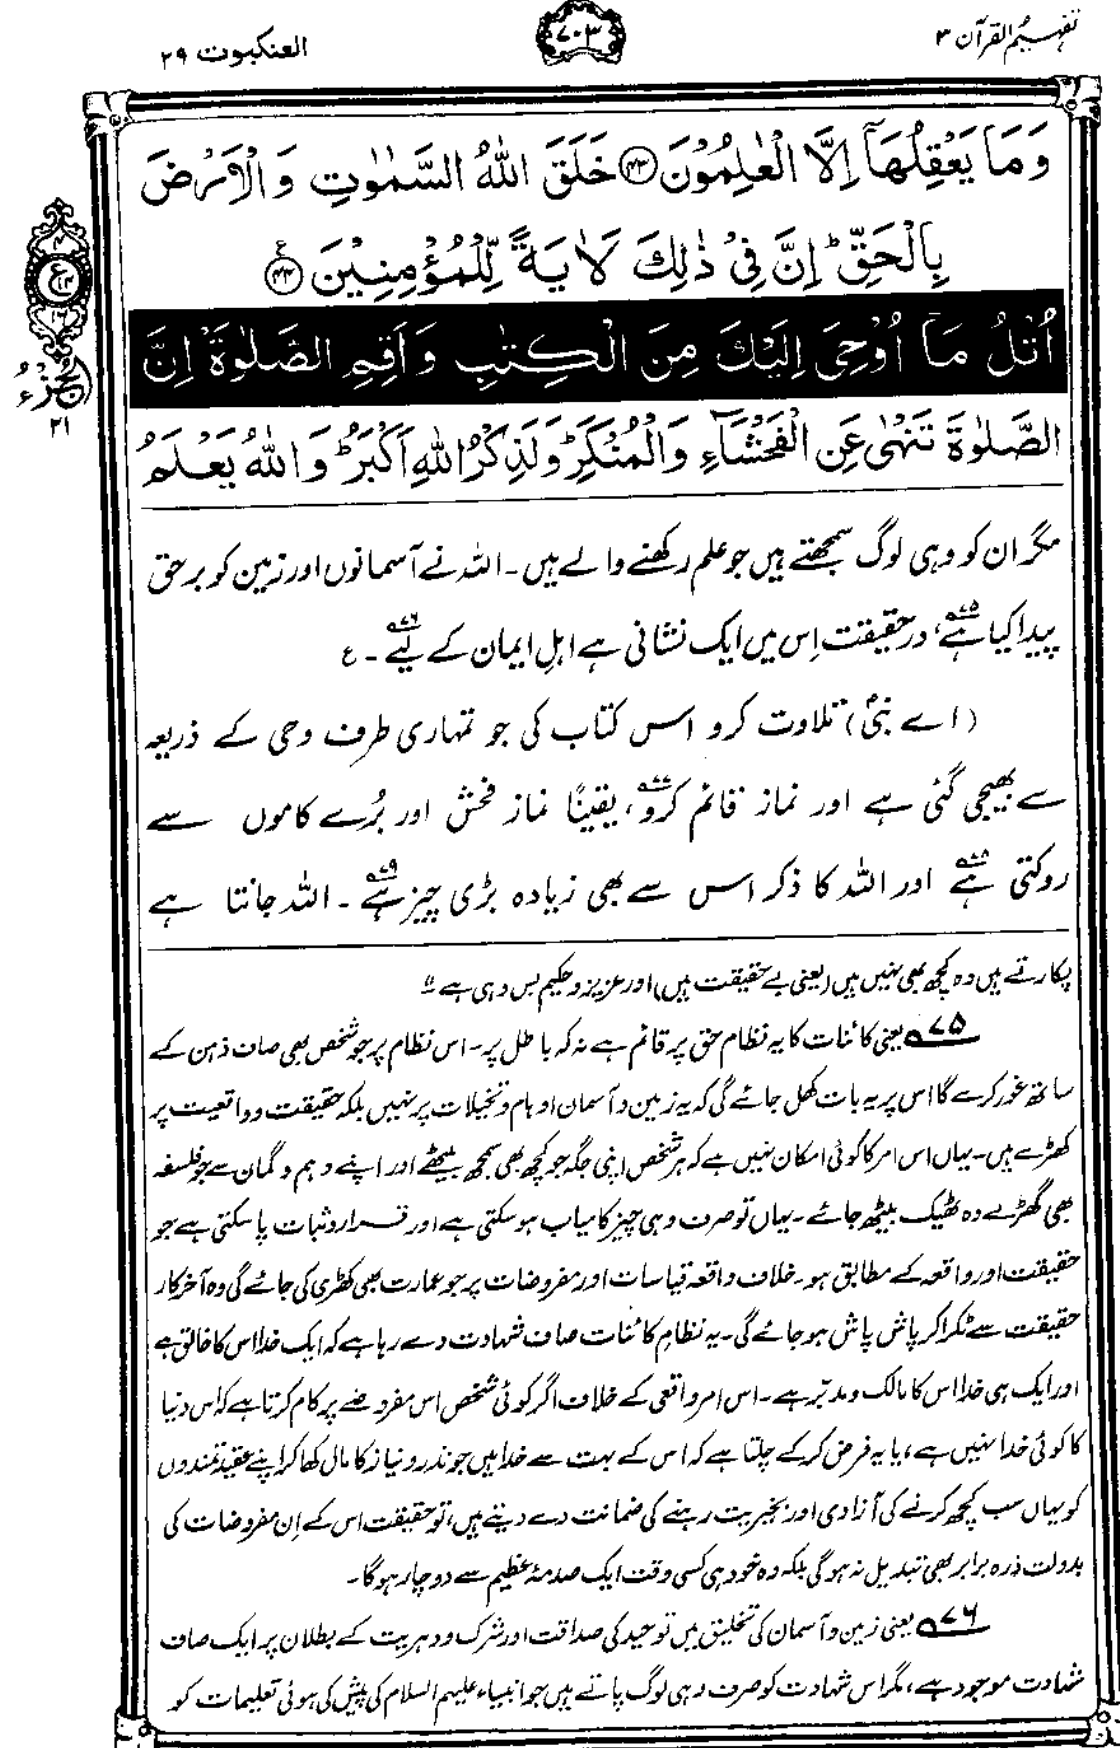 تفہیم القرآن ۳
۷۰۳
العنکبوت ۲۹
وَمَا يَعْقِلُهَآ اِلَّا الْعٰلِمُوْنَ ۴۳ خَلَقَ اللّٰهُ السَّمٰوٰتِ وَالْاَرْضَ
بِالْحَقِّ ؕ اِنَّ فِيْ ذٰلِكَ لَاٰيَةً لِّلْمُؤْمِنِيْنَ ۴۴ ع
اُتْلُ مَآ اُوْحِيَ اِلَيْكَ مِنَ الْكِتٰبِ وَاَقِمِ الصَّلٰوةَ ؕ اِنَّ
الصَّلٰوةَ تَنْهٰى عَنِ الْفَحْشَآءِ وَالْمُنْكَرِ ؕ وَلَذِكْرُ اللّٰهِ اَكْبَرُ ؕ وَاللّٰهُ يَعْلَمُ
الجزء
۲۱
مگر ان کو وہی لوگ سمجھتے ہیں جو علم رکھنے والے ہیں۔ اللہ نے آسمانوں اور زمین کو برحق
پیدا کیا ہے۷۵، درحقیقت اِس میں ایک نشانی ہے اہلِ ایمان کے لیے۷۶۔ ع
(اے نبیؐ) تلاوت کرو اس کتاب کی جو تمہاری طرف وحی کے ذریعہ
سے بھیجی گئی ہے اور نماز قائم کرو۷۷، یقینًا نماز فحش اور بُرے کاموں سے
روکتی ہے۷۸ اور اللہ کا ذکر اس سے بھی زیادہ بڑی چیز ہے۷۹۔ اللہ جانتا ہے
پکارتے ہیں وہ کچھ بھی نہیں ہیں (یعنی بے حقیقت ہیں) اور عزیز و حکیم بس وہی ہے"
۷۵ یعنی کائنات کا یہ نظام حق پر قائم ہے نہ کہ باطل پر۔ اس نظام پر جو شخص بھی صاف ذہن کے
ساتھ غور کرے گا اس پر یہ بات کھل جائے گی کہ یہ زمین و آسمان اوہام و تخیلات پر نہیں بلکہ حقیقت و واقعیت پر
کھڑے ہیں۔ یہاں اس امر کا کوئی امکان نہیں ہے کہ ہر شخص اپنی جگہ جو کچھ بھی سمجھ بیٹھے اور اپنے وہم و گمان سے جو فلسفہ
بھی گھڑے وہ ٹھیک بیٹھ جائے۔ یہاں تو صرف وہی چیز کامیاب ہوسکتی ہے اور قرار و ثبات پا سکتی ہے جو
حقیقت اور واقعہ کے مطابق ہو۔ خلاف واقعہ قیاسات اور مفروضات پر جو عمارت بھی کھڑی کی جائے گی وہ آخرکار
حقیقت سے ٹکرا کر پاش پاش ہو جائے گی۔ یہ نظامِ کائنات صاف شہادت دے رہا ہے کہ ایک خدا اس کا خالق ہے
اور ایک ہی خدا اس کا مالک و مدبّر ہے۔ اس امر واقعی کے خلاف اگر کوئی شخص اس مفروضے پر کام کرتا ہے کہ اس دنیا
کا کوئی خدا نہیں ہے، یا یہ فرض کر کے چلتا ہے کہ اس کے بہت سے خدا ہیں جو نذر و نیاز کا مال کھا کر اپنے عقیدتمندوں
کو یہاں سب کچھ کرنے کی آزادی اور بخیریت رہنے کی ضمانت دے دیتے ہیں، تو حقیقت اس کے اِن مفروضات کی
بدولت ذرہ برابر بھی تبدیل نہ ہو گی بلکہ وہ خود ہی کسی وقت ایک صدمۂ عظیم سے دوچار ہوگا۔
۷۶ یعنی زمین و آسمان کی تخلیق میں توحید کی صداقت اور شرک و دہریت کے بطلان پر ایک صاف
شہادت موجود ہے، مگر اس شہادت کو صرف وہی لوگ پاتے ہیں جو انبیاء علیہم السلام کی پیش کی ہوئی تعلیمات کو